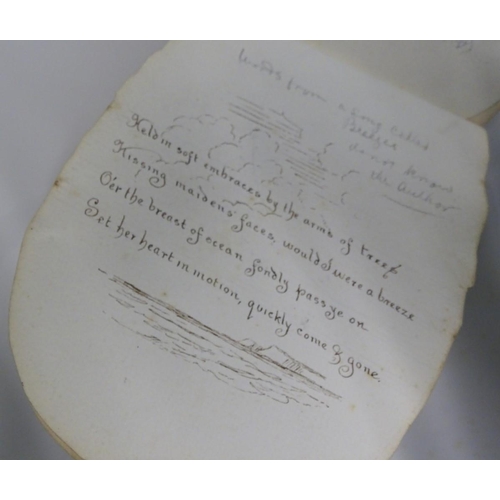 Words from a song called
Breezes
do not know
the author
Held in soft embraces by the arms of trees
Kissing maidens faces, would I were a breeze
O'er the breast of ocean fondly pass ye on
Set her heart in motion, quickly come & gone.